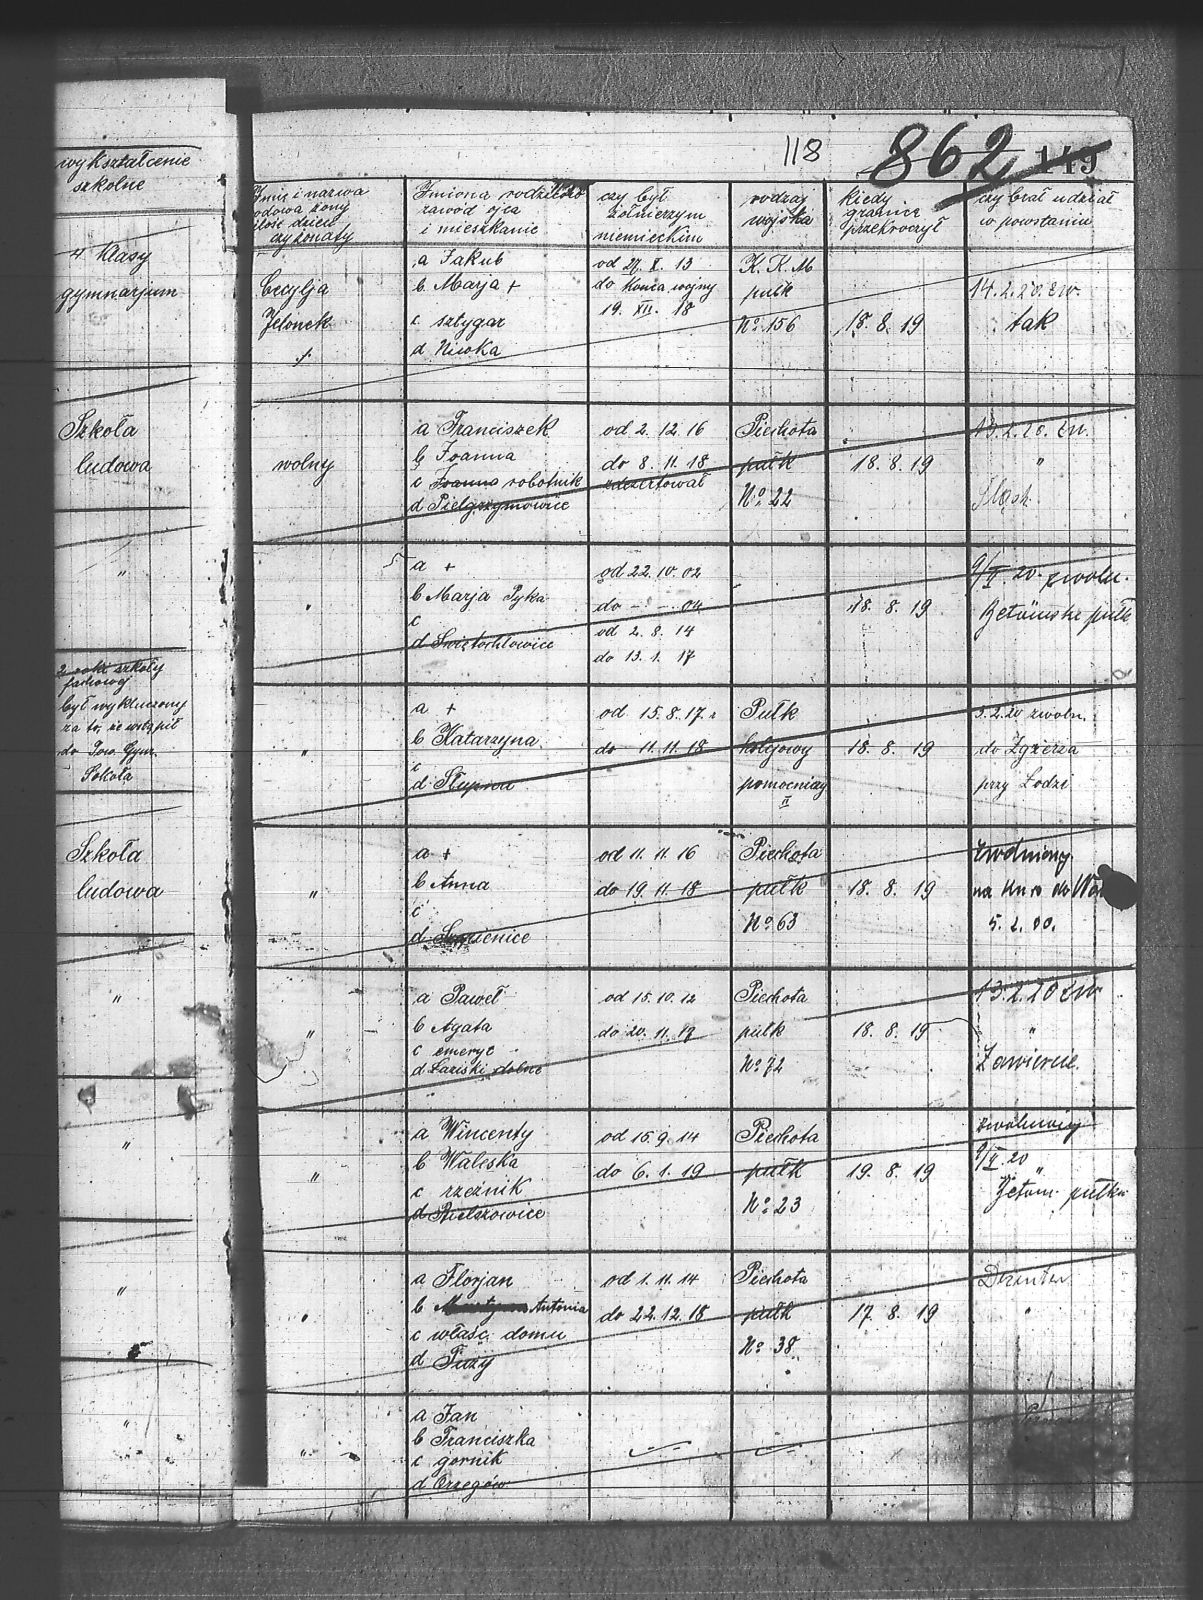 118 862 149
wykształcenie
szkolne
Imię i nazwa
rodowa żony
ilość dzieci
czy żonaty
Imiona rodziców
zawód ojca
i mieszkanie
czy był
żołnierzem
niemieckim
rodzaj
wojska
kiedy
granicę
przekroczył
czy brał udział
w powstaniu
4 klasy
gymnazjum
Cecylja
Jelonek
a Jakub
b Marja +
c sztygar
d Niwka
od 27. X. 13
do Końca wojny
19. XII. 18
K.K.M
pułk
No 156
18. 8. 19
14. 2. 20. zw.
tak
Szkoła
ludowa
wolny
a Franciszek
b Joanna
c Joanna robotnik
d Pielgrzymowice
od 2. 12. 16
do 8. 11. 18
zdezertował
Piechota
pułk
No 22
18. 8. 19
13. 2. 20. zw.
"
"
"
a +
b Marja Pyka
c
d Świętochłowice
od 22. 10. 02
do - - 04
od 2. 8. 14
do 13. 1. 17
18. 8. 19
9/II. 20. zwoln.
pułk
2 rok szkoły
fachowej
był wykluczony
za to, że wstąpił
do Tow. Gym.
Sokoła
"
a +
b Katarzyna
c
d Słupna
od 15. 8. 17.
do 11. 11. 18
Pułk
kolejowy
pomocniczy
II
18. 8. 19
5. 2. 20 zwoln.
do Zgierza
przy Łodzi
Szkoła
ludowa
"
a +
b Anna
c
d
od 11. 11. 16
do 19. 11. 18
Piechota
pułk
No 63
18. 8. 19
zwolniony
na kurs do
5. 2. 20.
"
"
a Paweł
b Agata
c emeryt
d Łaziski dolne
od 15. 10. 12
do 20. 11. 19
Piechota
pułk
No 72
18. 8. 19
13. 2. 20 zw.
"
Zawiercie.
"
"
a Wincenty
b Waleska
c rzeźnik
d Bielszowice
od 15. 9. 14
do 6. 1. 19
Piechota
pułk
No 23
19. 8. 19
zwolniony
9/II. 20
"
pułku
"
"
a Florjan
b Antonia
c właśc. domu
d
od 1. 11. 14
do 22. 12. 18
Piechota
pułk
No 38
17. 8. 19
"
"
"
a Jan
b Franciszka
c górnik
d Orzegów